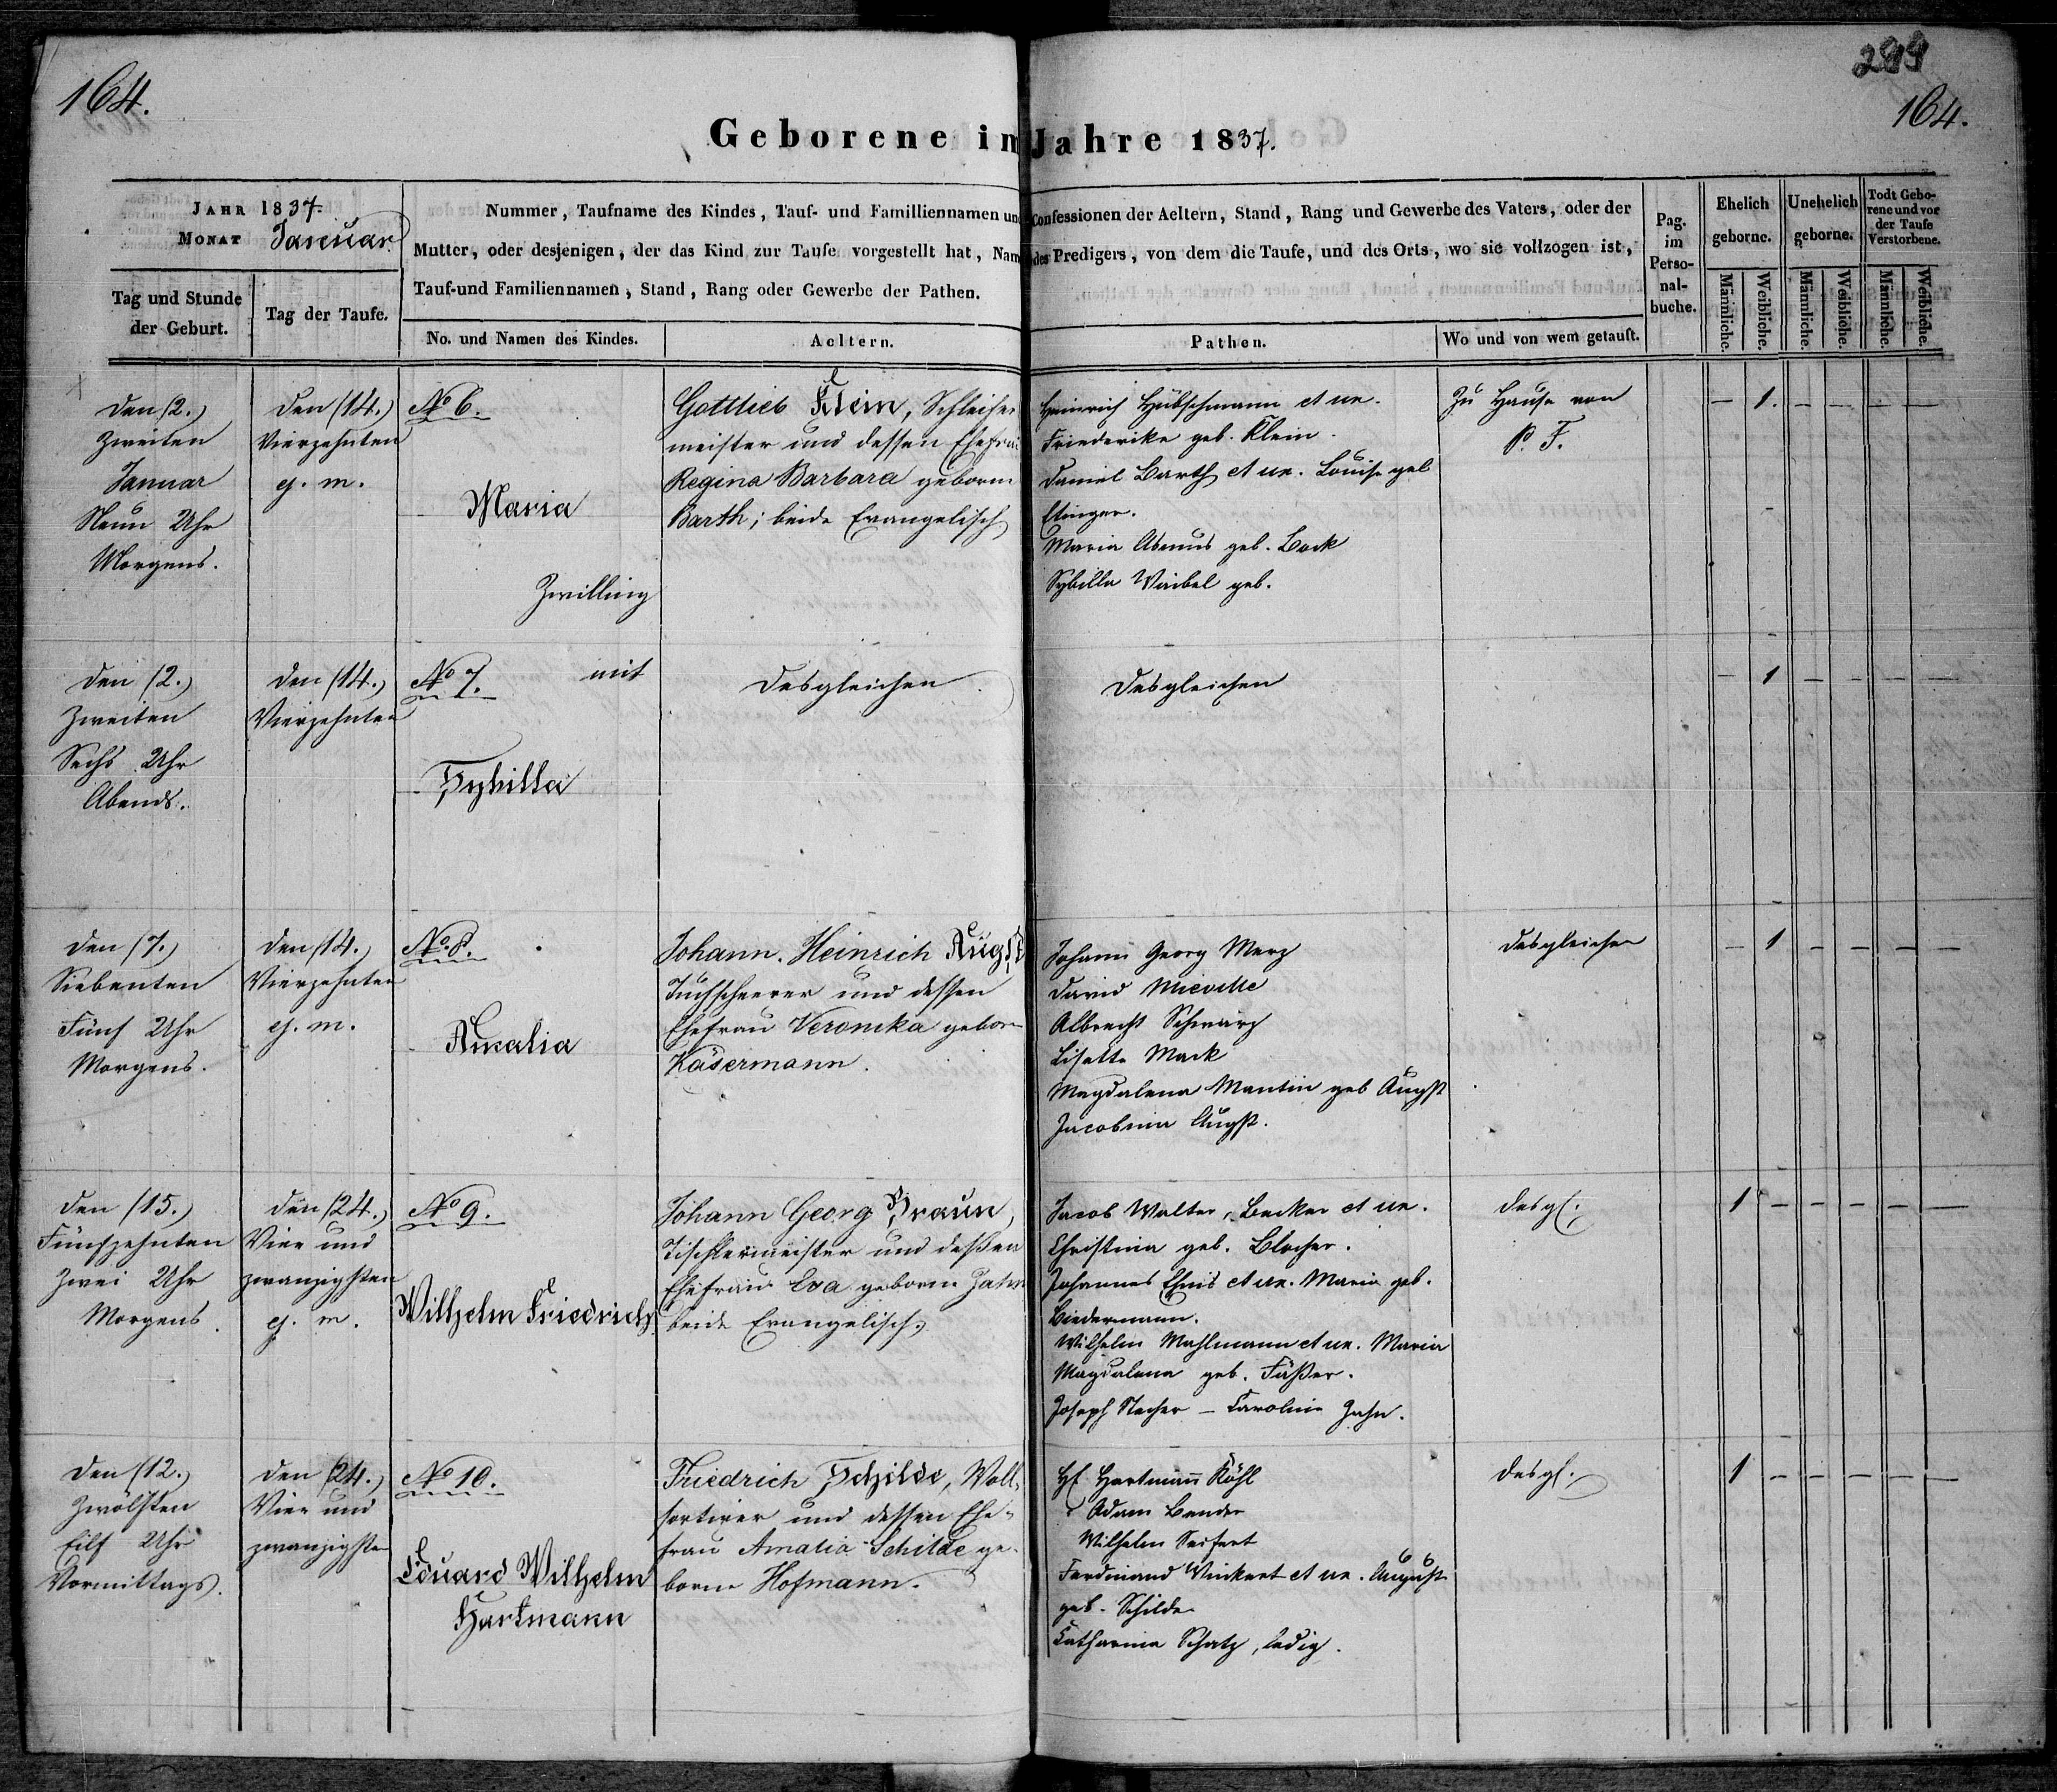 164.
299
164.
Geborene im Jahre 1837.
JAHR 1837.
MONAT Januar
Nummer, Taufname des Kindes, Tauf- und Familliennamen und Confessionen der Aeltern, Stand, Rang und Gewerbe des Vaters, oder der
Mutter, oder desjenigen, der das Kind zur Taufe vorgestellt hat, Name des Predigers, von dem die Taufe, und des Orts, wo sie vollzogen ist,
Tauf-und Familiennamen, Stand, Rang oder Gewerbe der Pathen.
Pag.
im
Perso-
nal-
buche.
Ehelich
geborne.
Unehelich
geborne.
Todt Gebo-
rene und vor
der Taufe
Verstorbene.
Tag und Stunde
der Geburt.
Tag der Taufe.
No. und Namen des Kindes.
Aeltern.
Pathen.
Wo und von wem getauft.
Männliche.
Weibliche.
Männliche.
Weibliche.
Männliche.
Weibliche.
den (2.)
Zweiten
Januar
Neun Uhr
Morgens.
den (14.)
Vierzehnten
ej. m.
No 6.
Maria
Zwilling
Gottlieb Klein, Schleifer
meister und dessen Ehefrau
Regina Barbara geborne
Barth; beide Evangelisch
Heinrich Hübschmann et ux.
Friederike geb. Klein.
Daniel Barth et ux. Louise geb
Etinger.
Maria Asmus geb. Bock
Sybilla Waibel geb.
Zu Hause von
P. F.
— 1. — — — —
den (2.)
Zweiten
Sechs Uhr
Abends.
den (14.)
Vierzehnten
No 7.
mit
Sybilla
Desgleichen.
Desgleichen
— 1 — — — —
den (7.)
Siebenten
Fünf Uhr
Morgens.
den (14.)
Vierzehnten
ej. m.
No. 8.
Amalia
Johann Heinrich Augst
Tuchscheerer und dessen
Ehefrau Veronika geborne
Käsermann.
Johann Georg Merz
David Mieville
Albrecht Schwarz
Lisette Mack
Magdalena Mantin geb Augst
Jacobina Augst.
desgleichen
— 1 — — — —
den (15.)
Fünfzehnten
Zwei Uhr
Morgens.
den (24.)
Vier und
zwanzigsten
ej. m.
No 9.
Wilhelm Friedrich
Johann Georg Braun,
Tischlermeister und deßen
Ehefrau Eva geborne Zahn
beide Evangelisch.
Jacob Walter, Becker et ux.
Christina geb. Blocher.
Johannes Ehnis et ux. Maria geb.
Biedermann.
Wilhelm Mahlmann et ux. Maria
Magdalena geb. Fäßer.
Joseph Stecher — Carolina Zahn.
desgl.
1 — — — — —
den (12.)
Zwölften
Eilf Uhr
Vormittags.
den (24.)
Vier und
zwanzigsten
No 10.
Eduard Wilhelm
Hartmann
Friedrich Schilde, Woll-
sortirer und dessen Ehe-
frau Amalia Schilde ge-
borne Hofmann.
Hartmann Röhl
Adam Bender
Wilhelm Seifert
Ferdinand Winkert et ux. August
geb. Schilde
Catharina Schatz, ledig.
desgl.
1 — — — — —